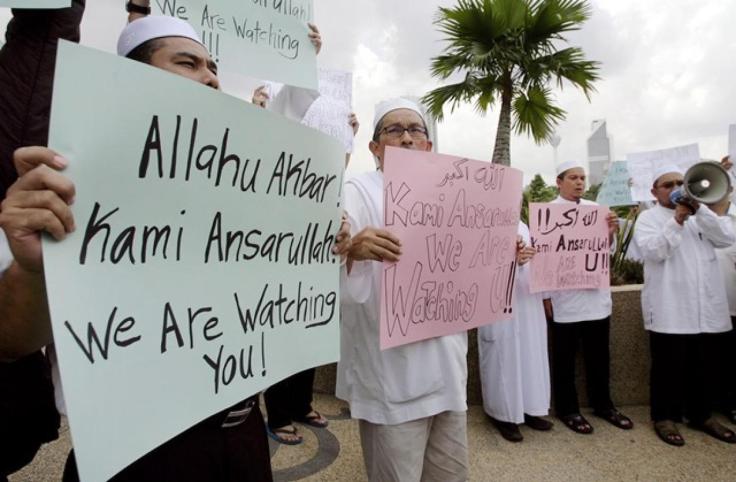 Ansarullah!
We Are Watching
!!!
Allahu Akbar!
Kami Ansarullah!
We Are Watching
You!
الله اكبر
Kami Ansarullah
We Are
Watching U!!
الله اكبر!!
Kami Ansarullah
We Are
Watching U!!